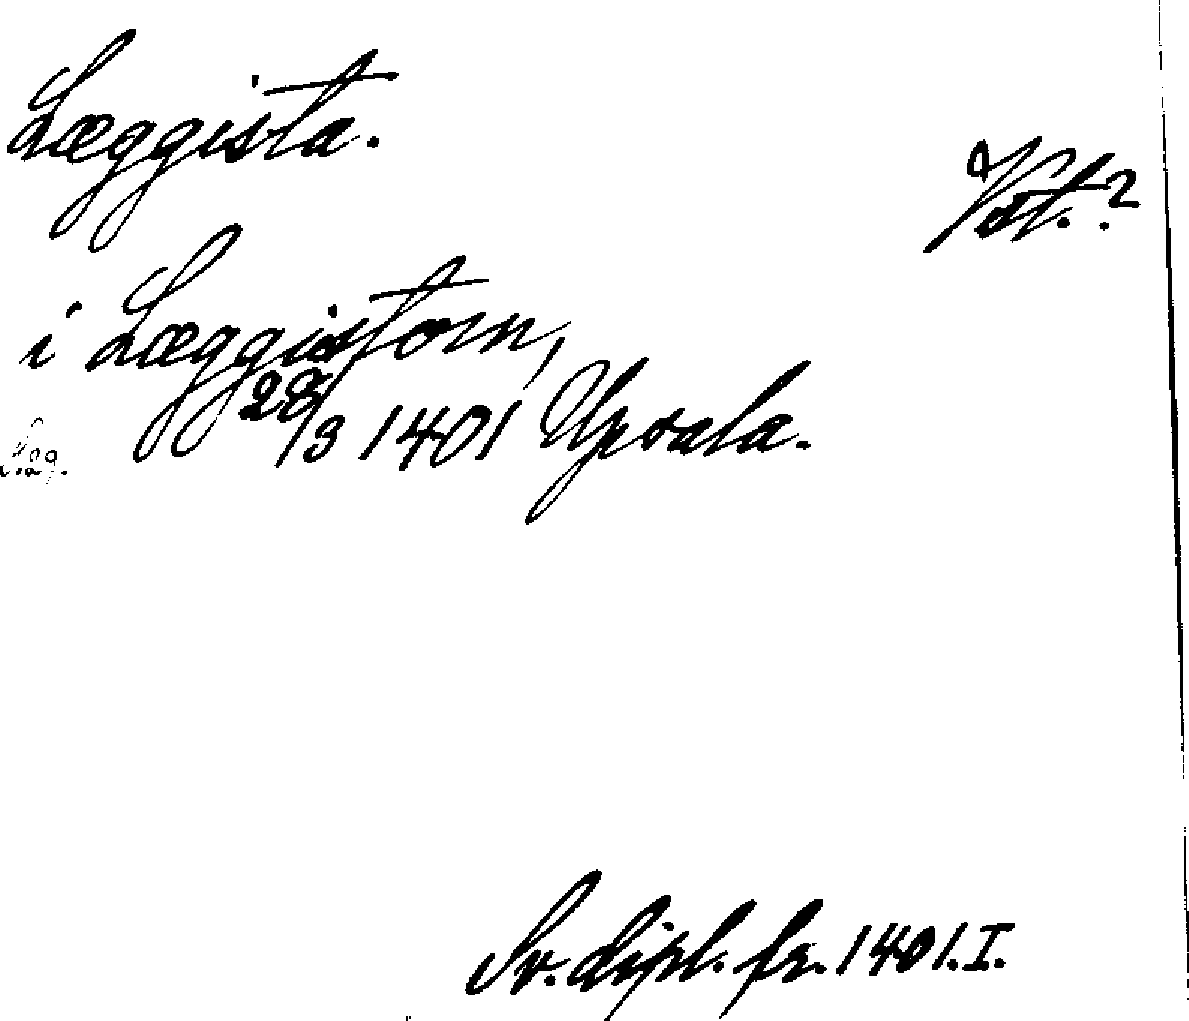 Læggista.
Vst.?
i Læggistom,
28/3 1401 Upsala.
S. 29.
Sv. dipl. fr. 1401. I.